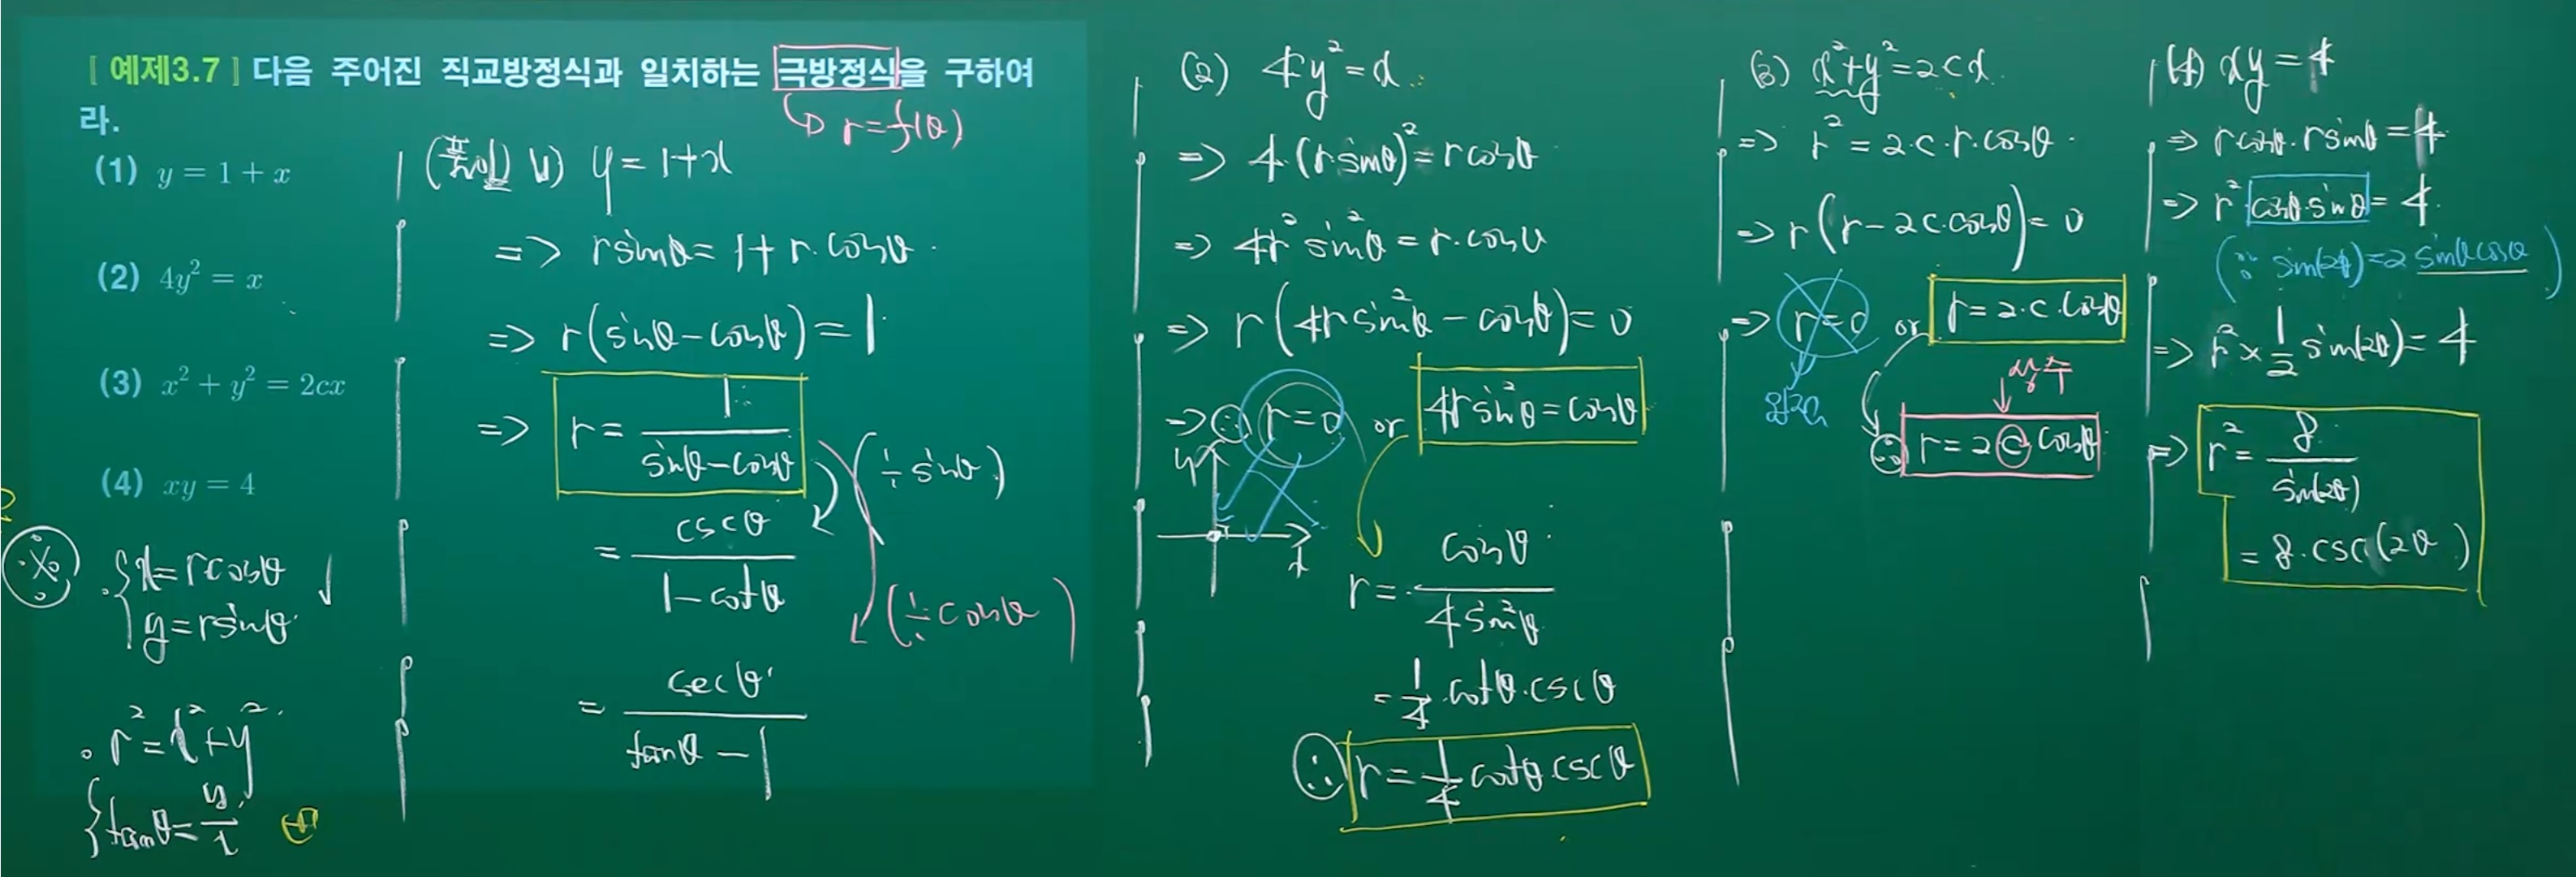 [ 예제3.7 ] 다음 주어진 직교방정식과 일치하는 극방정식을 구하여
라.
↳ r=f(θ)
(1) y = 1 + x
(2) 4y² = x
(3) x² + y² = 2cx
(4) xy = 4
※ x=rcosθ
y=rsinθ
r²=x²+y²
tanθ=y/x
(풀이) (1) y=1+x
=> rsinθ=1+r·cosθ
=> r(sinθ-cosθ)=1
=> r=1/(sinθ-cosθ)
(÷sinθ)
= cscθ/(1-cotθ)
(÷cosθ)
= secθ/(tanθ-1)
(2) 4y²=x
=> 4(rsinθ)²=rcosθ
=> 4r²sin²θ=r·cosθ
=> r(4rsin²θ-cosθ)=0
=> ∴ r=0 or 4rsin²θ=cosθ
y
x
r=cosθ/4sin²θ
=1/4·cotθ·cscθ
∴ r=1/4cotθ·cscθ
(3) x²+y²=2cx
=> r²=2·c·r·cosθ
=> r(r-2c·cosθ)=0
=> r=0 or r=2·c·cosθ
상수
∴ r=2c cosθ
(4) xy=4
=> rcosθ·rsinθ=4
=> r²cosθ·sinθ=4
(∵ sin(2θ)=2sinθcosθ)
=> r²×1/2sin(2θ)=4
=> r²=8/sin(2θ)
=8·csc(2θ)